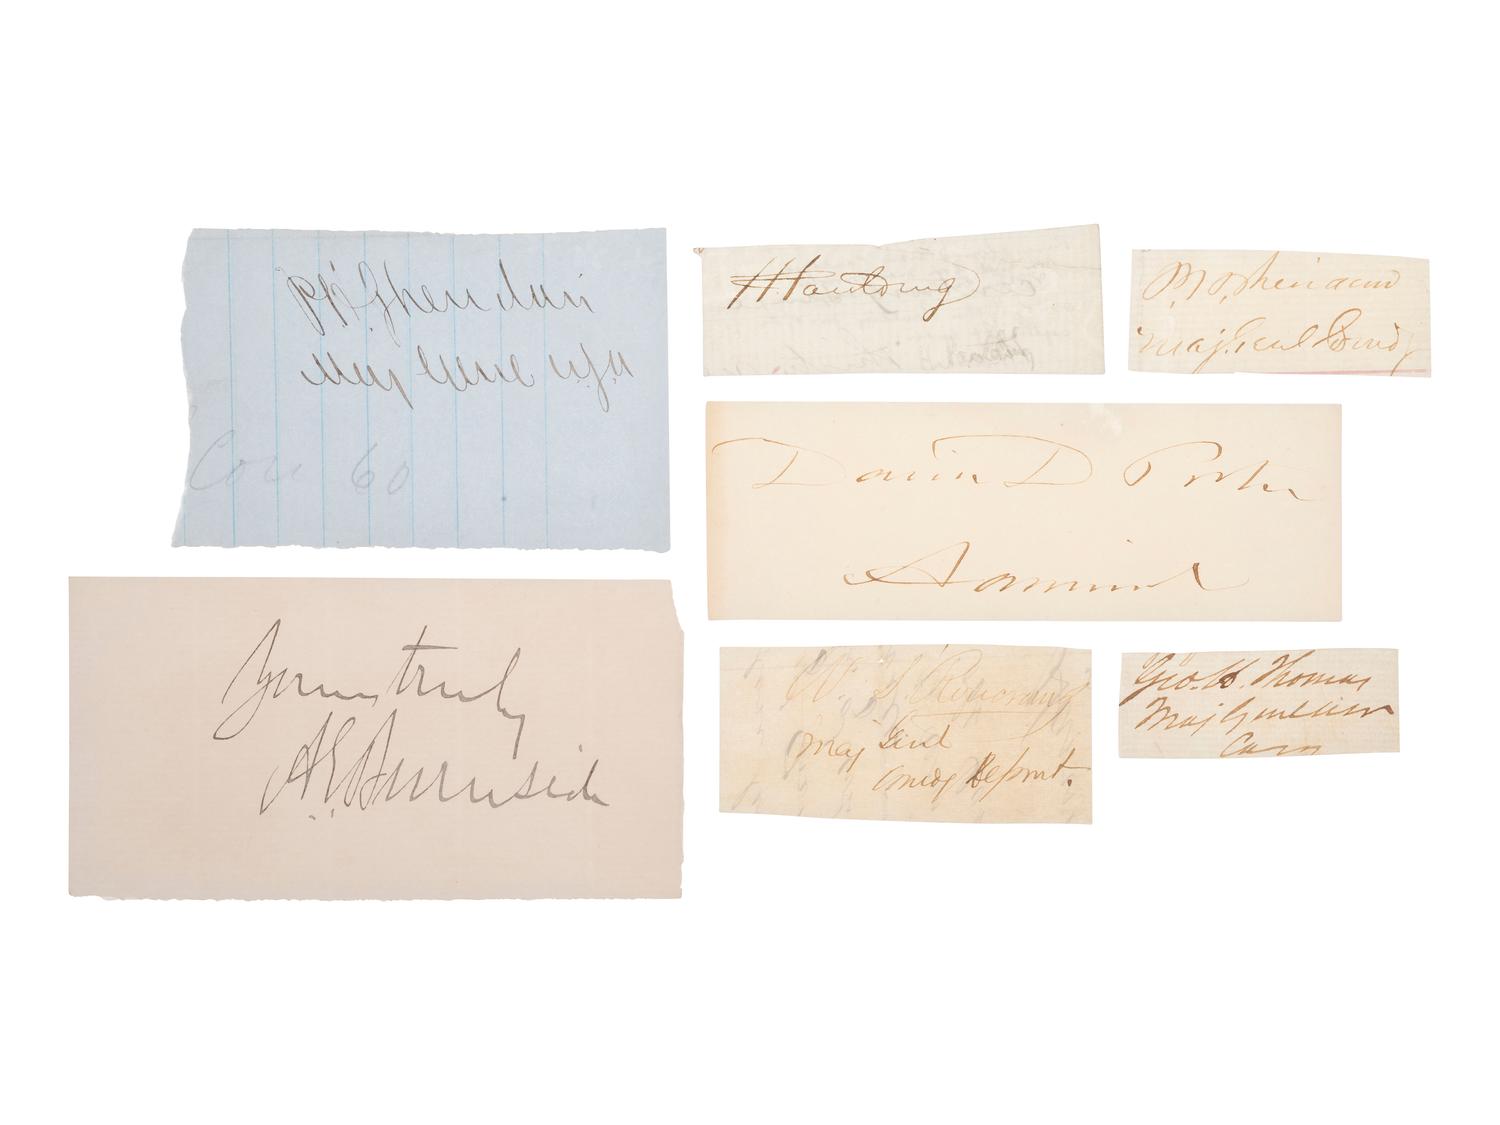 P. H. Sheridan
Maj Genl U.S.A
Yours truly
A. E. Burnside
H Paulding
P. H. Sheridan
Maj. Genl Comdg
David D Porter
Admiral
W. S. Rosecrans
Maj Genl
Comdg Depmt.
Geo. H. Thomas
Maj Genl U.S.V.
Comg